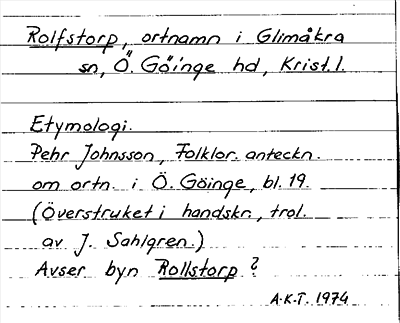 Rolfstorp, ortnamn i Glimåkra
sn, Ö. Göinge hd, Krist. l.
Etymologi.
Pehr Johnsson, Folklor. anteckn.
om ortn. i Ö. Göinge, bl. 19.
(Överstruket i handskr., trol.
av J. Sahlgren.)
Avser byn Rollstorp?
A.K.T. 1974